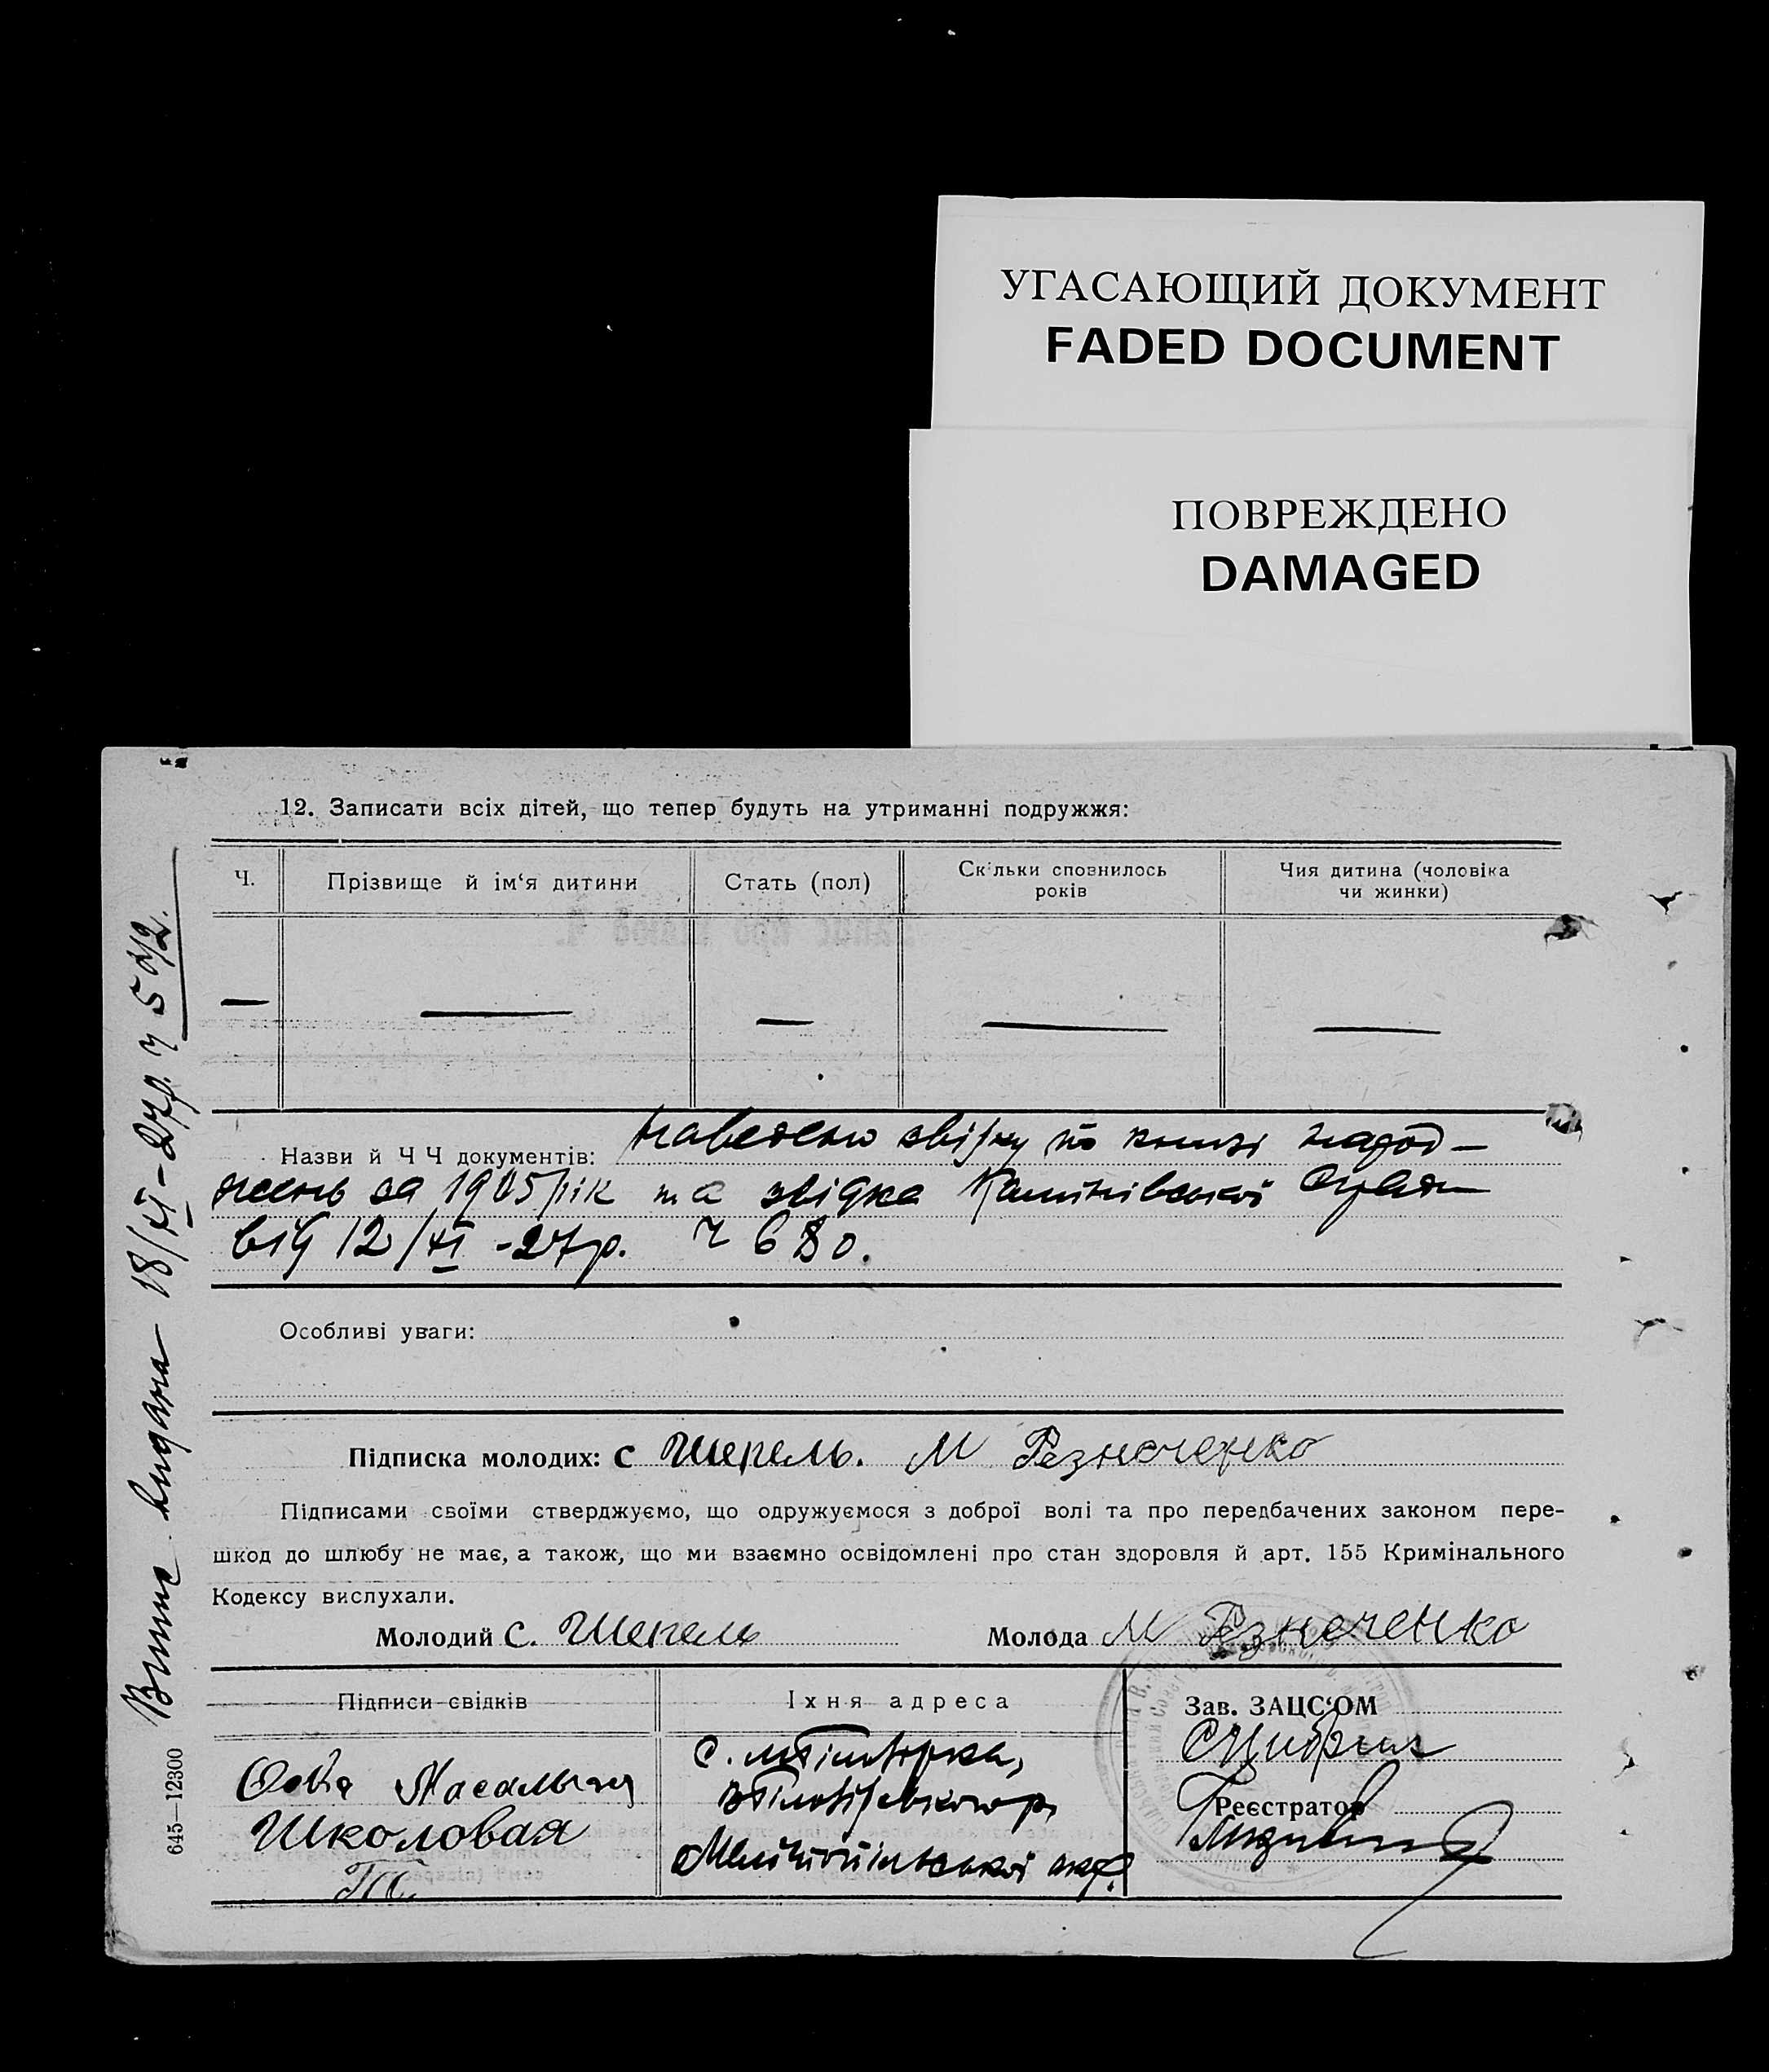 УГАСАЮЩИЙ ДОКУМЕНТ
FADED DOCUMENT
ПОВРЕЖДЕНО
DAMAGED
12. Записати всіх дітей, що тепер будуть на утриманні подружжя:
Ч.
Прізвище й ім‘я дитини
Стать (пол)
Скільки сповнилось
років
Чия дитина (чоловіка
чи жинки)
Назви й Ч Ч документів: звідку по книзі народ-
жень за 1905 рік та звідка
від 12/XI -27р. Ч 680.
Особливі уваги:
Підписка молодих: С Шепель. М Резнеченко
Підписами своїми стверджуємо, що одружуємося з доброї волі та про передбачених законом пере-
шкод до шлюбу не має, а також, що ми взаємно освідомлені про стан здоровля й арт. 155 Кримінального
Кодексу вислухали.
Молодий С. Шепель Молода М Резнеченко
Підписи свідків
Їхня адреса
Зав. ЗАЦС‘ОМ
Школовая
с.
Реєстратор
18/XI-27р. Ч 542.
645—12300